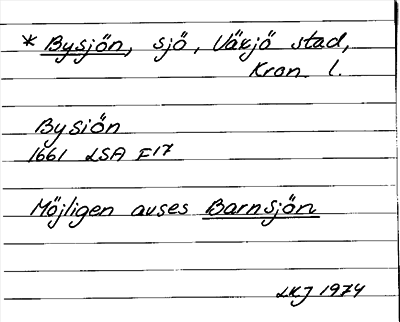 * Bysjön, sjö, Växjö stad,
Kron. l.
Bysiön
1661 LSA F17
Möjligen avses Barnsjön
LKJ 1974